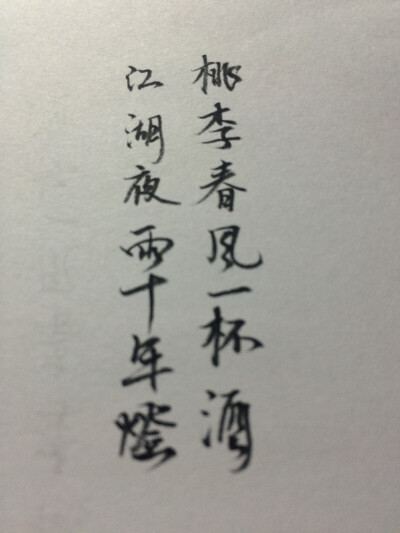 桃李春风一杯酒
江湖夜雨十年燈